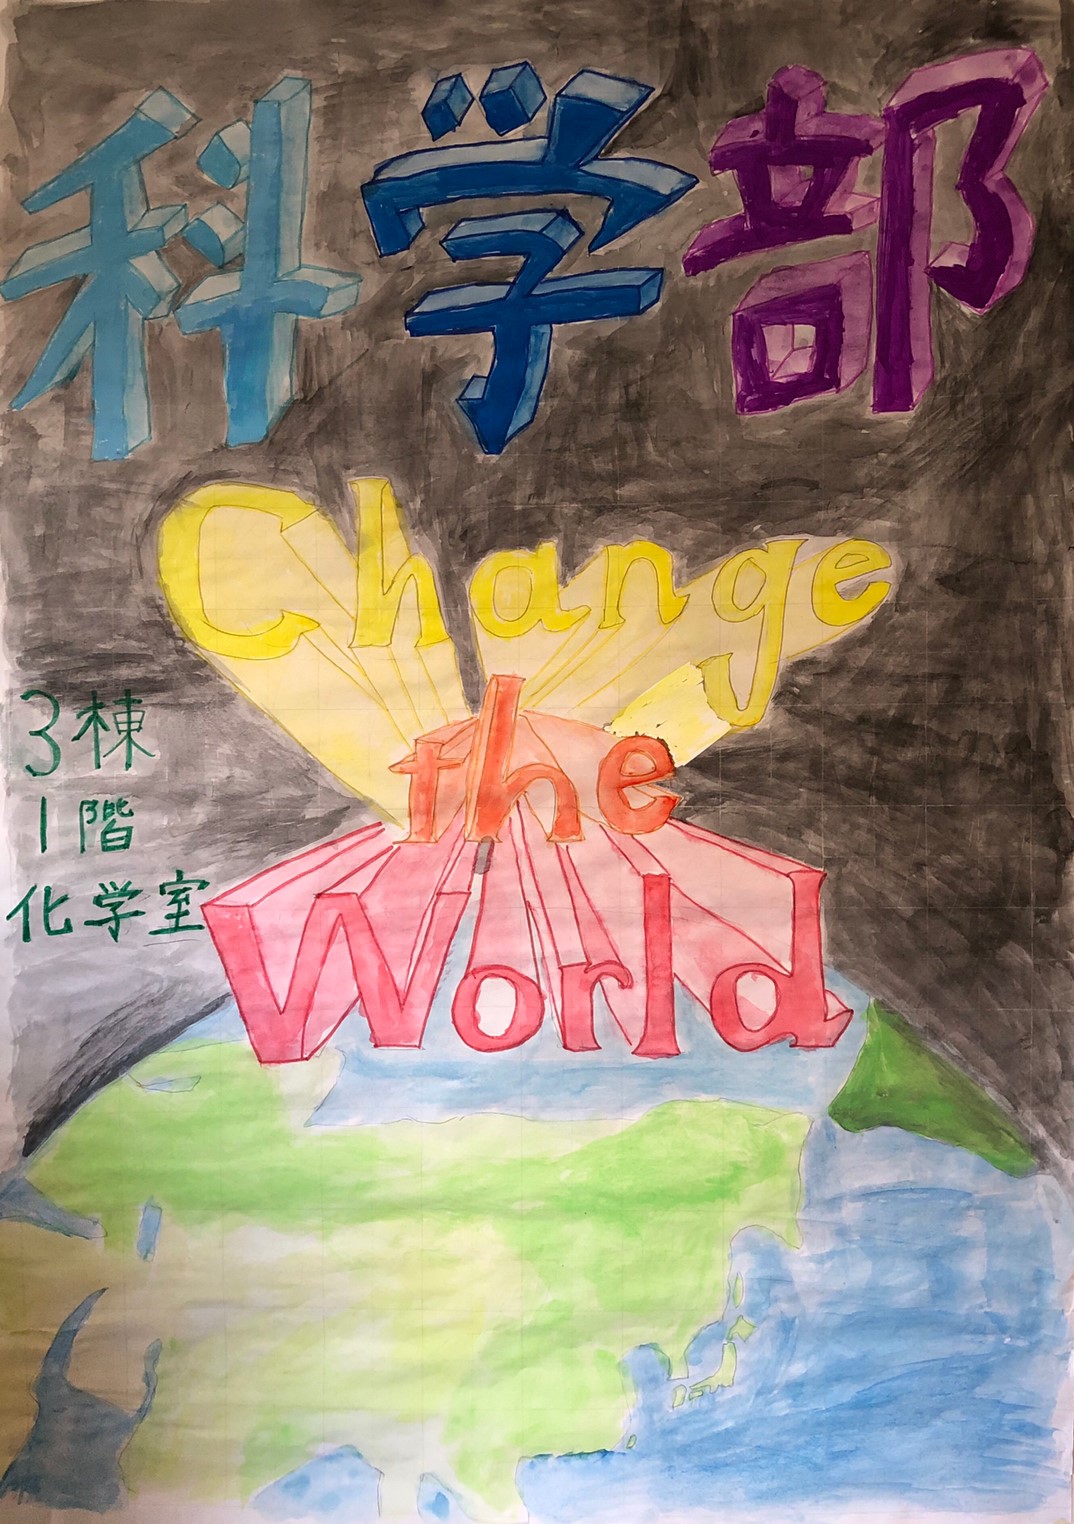 科学部
Change
the
World
3棟
1階
化学室